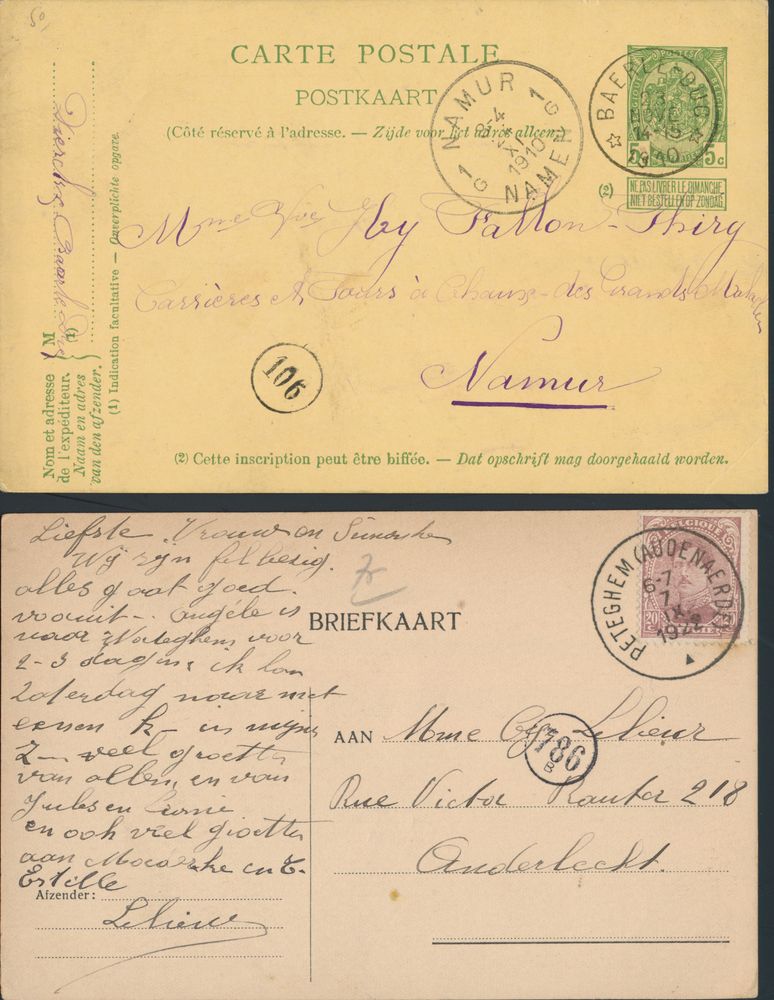 50,
CARTE POSTALE
POSTKAART
(Côté réservé à l'adresse. — Zijde voor het adres alleen.)
NAMUR 1 G
8-4
XI
1910
NAMEN
1 G
BAERLE-DUC
3
NOVE
14-15
1910
5c 5c
(2)
NE PAS LIVRER LE DIMANCHE
NIET BESTELLEN OP ZONDAG
Mme Vve Fallon-Thiry
Carrières et Fours à Chaux-des Grands Malades
Namur
106
Nom et adresse
de l'expéditeur.
Naam en adres
van den afzender.
M
(1)
Baerle Duc
(1) Indication facultative — Onverplichte opgave.
(2) Cette inscription peut être biffée. — Dat opschrift mag doorgehaald worden.
Liefste Vrouw en
Wij zijn fel bezig.
alles gaat goed
vooruit - Angèle is
naar Wareghem voor
2-3 dagen ik kan
Zaterdag naar met
eersen k- in mijne
Z- veel groetten
van allen, en van
Jules en
en ook veel groetten
aan en
Estelle
Afzender:
Lelieur
BRIEFKAART
BELGIQUE
20 20
PETEGHEM (AUDENAERDE)
6-7
7
IX
192
AAN Mme Lelieur
786
B
Rue Victor Rauter 218
Anderlecht.